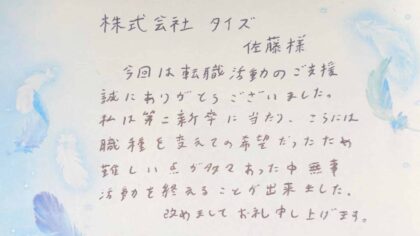 株式会社 タイズ
佐藤様
今回は転職活動のご支援
誠にありがとうございました。
私は第二新卒に当たり、さらには
職種を変えての希望だったため
難しい点が多々あった中無事
活動を終えることが出来ました。
改めましてお礼申し上げます。